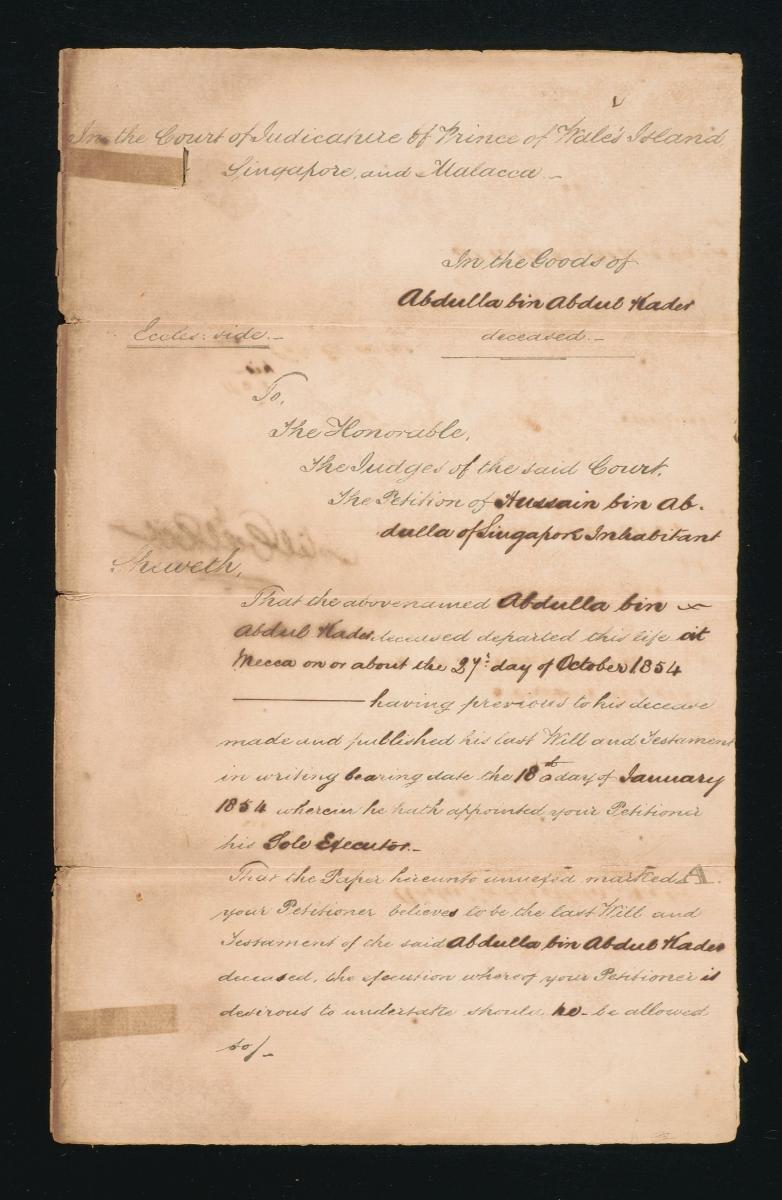 In the Court of Judicature of Prince of Wale's Island
Singapore, and Malacca.-
In the Goods of
Abdulla bin Abdul Kader
Eccles: side.-
deceased.-
To,
The Honorable,
The Judges of the said Court.
The Petition of Hussain bin Ab-
dulla of Singapore Inhabitant
Sheweth,
That the abovenamed Abdulla bin
Abdul Kader deceased departed this life at
Mecca on or about the 27th day of October 1854
having previous to his decease
made and published his last Will and Testament
in writing bearing date the 18th day of January
1854 wherein he hath appointed your Petitioner
his Sole Executor.-
That the Paper hereunto annexed marked A.
your Petitioner believes to be the last Will and
Testament of the said Abdulla bin Abdul Kader
deceased, the execution whereof your Petitioner is
desirous to undertake should he - be allowed
so/-